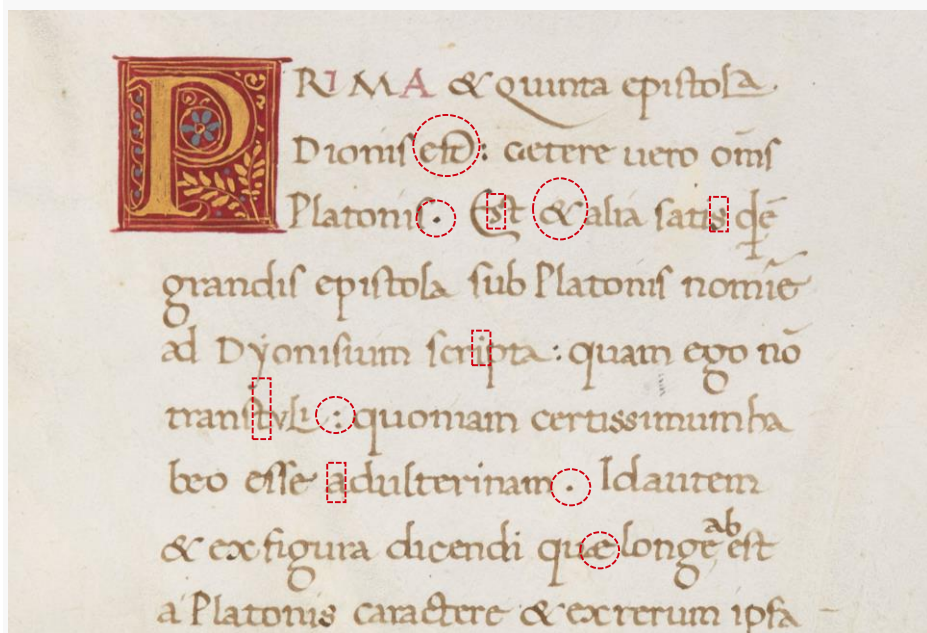 PRIMA & Quinta epistola
Dionis est: cetere uero om̄s
Platonis. Est & alia satis ꝗdē
grandis epistola sub Platonis nomīe
ad Dyonisium scripta: quam ego nō
transtvli: quoniam certissimum ha
beo esse adulterinam. Id autem
& ex figura dicendi quæ longe ab est
a Platonis caractere & ex rerum ipsa